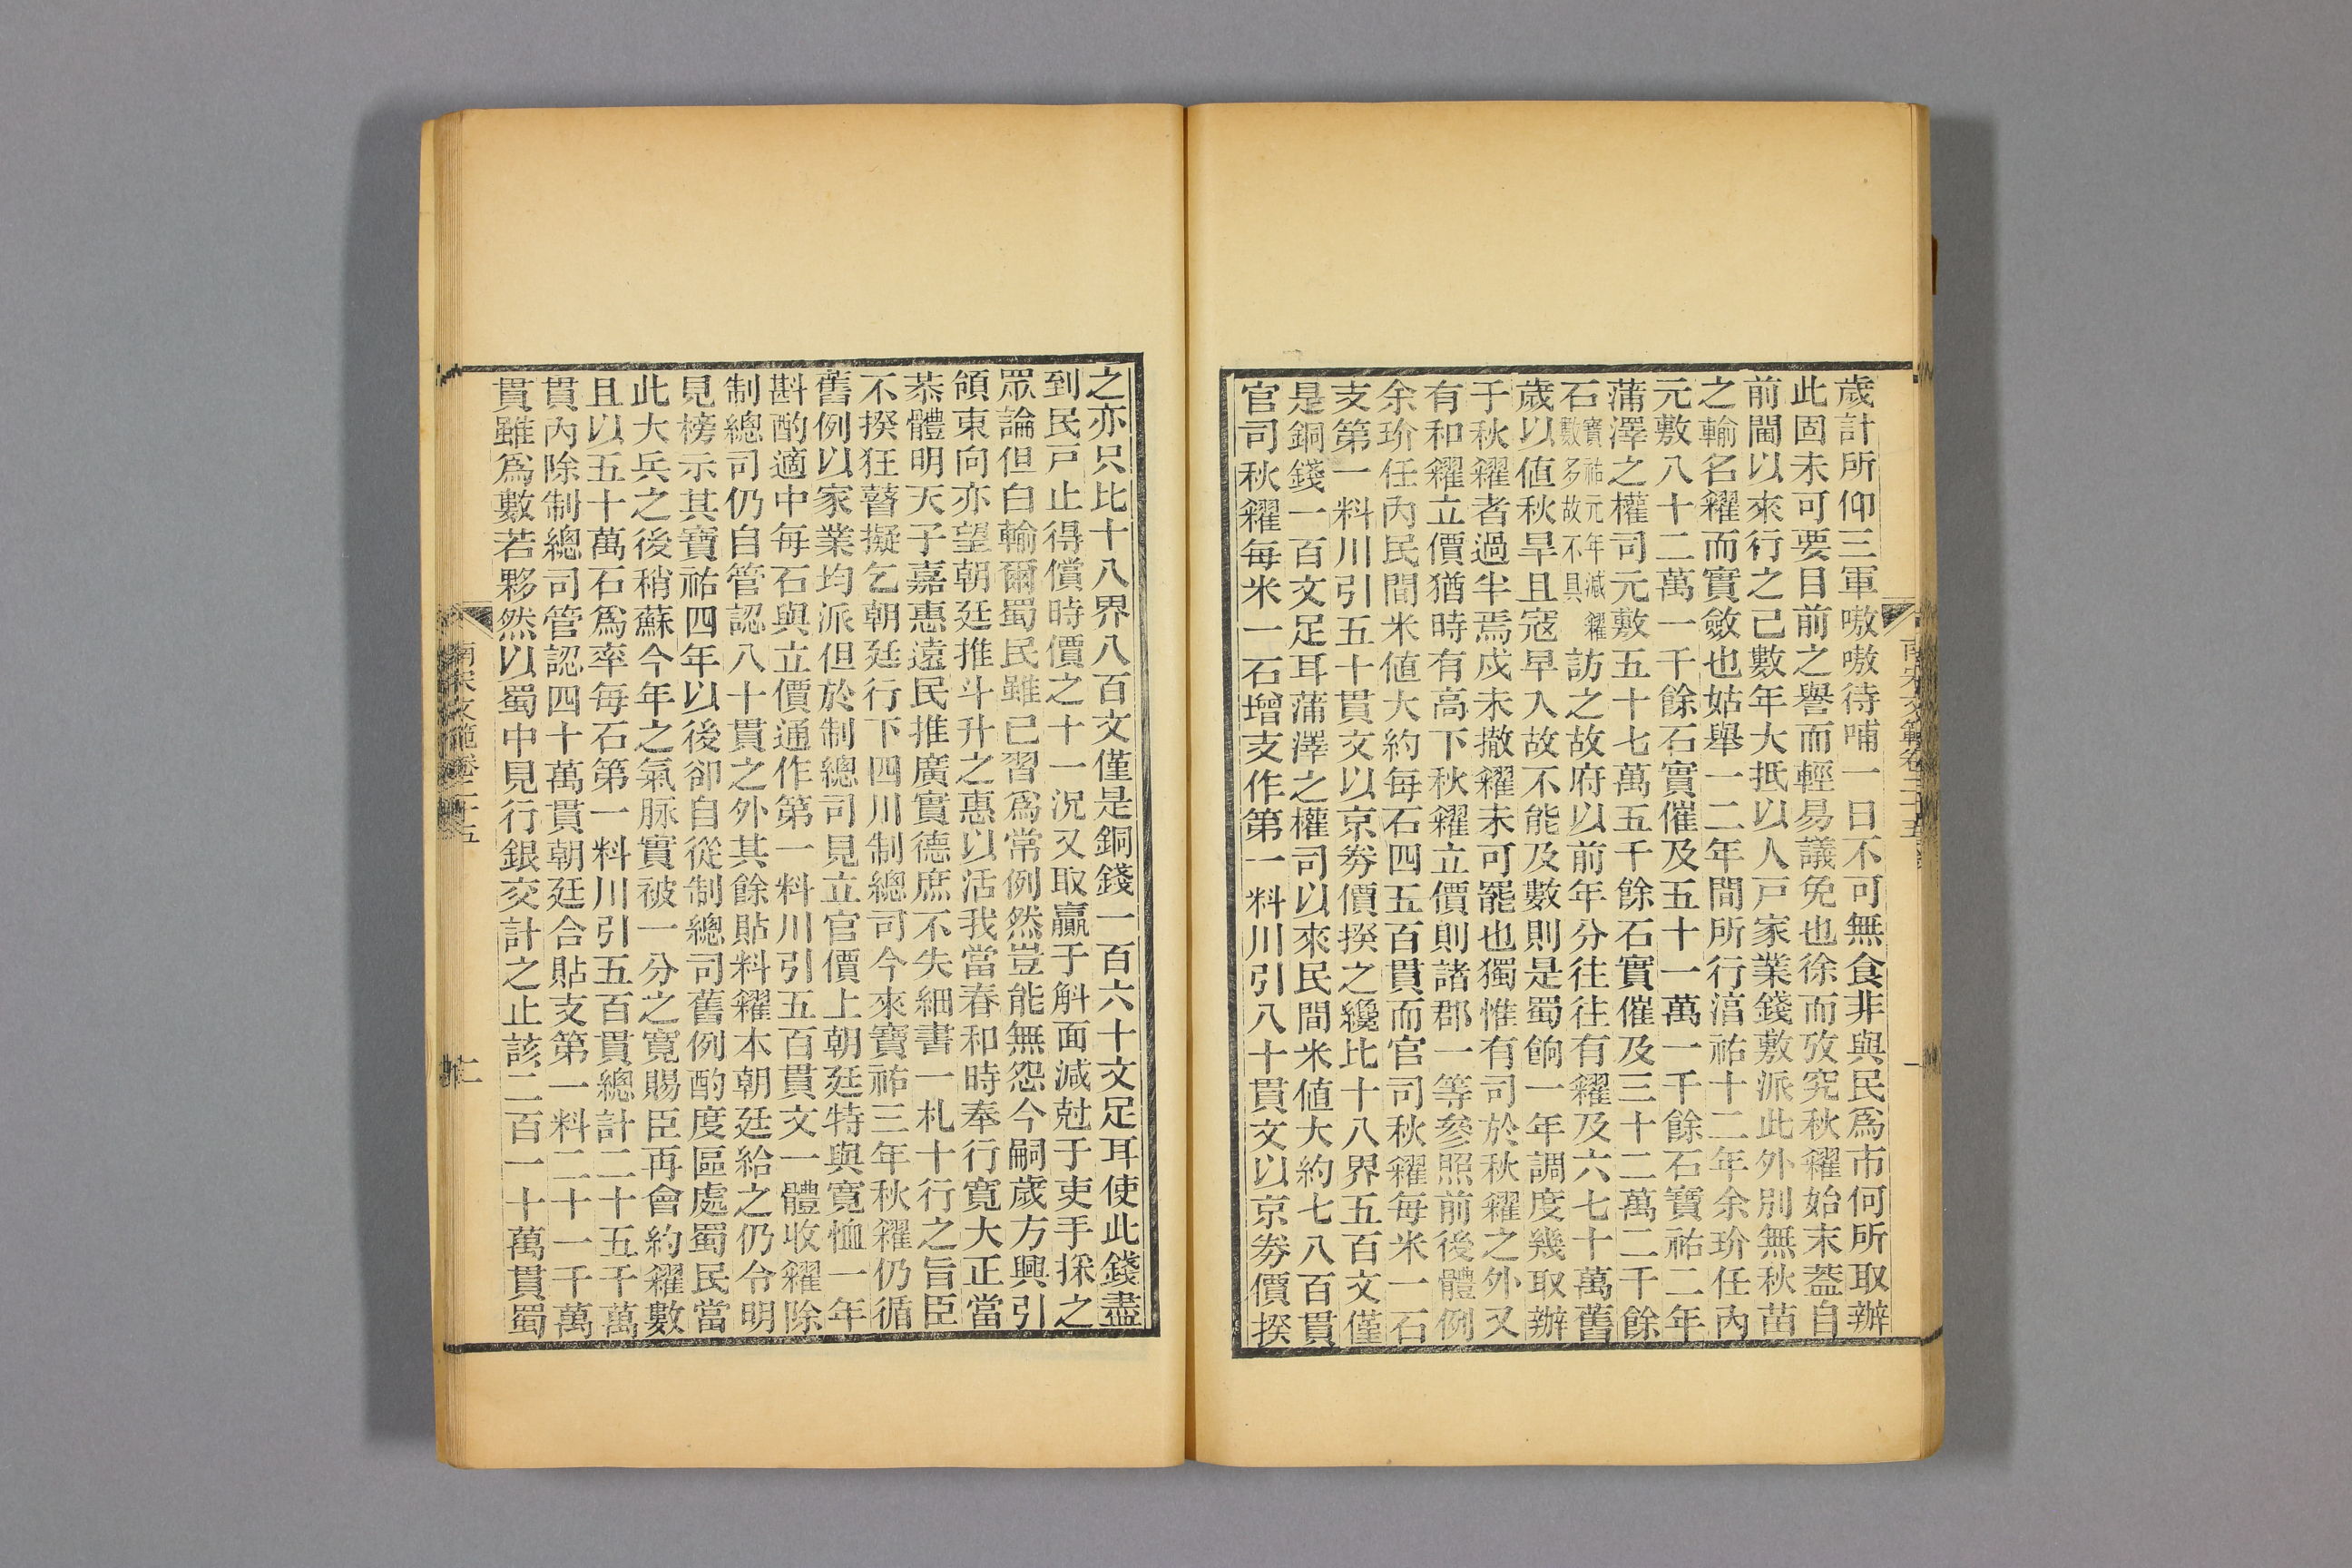 歲計所仰三軍嗷嗷待哺一日不可無食非與民爲市何所取辦
此固未可要目前之譽而輕易議免也徐而攷究秋糴始末葢自
前閫以來行之已數年大抵以人戸家業錢敷派此外別無秋苗
之輸名糴而實斂也姑舉一二年間所行湻祐十二年余玠任內
元敷八十二萬一千餘石實催及五十一萬一千餘石寶祐二年
蒲澤之權司元敷五十七萬五千餘石實催及三十二萬二千餘
石寶祐元年減糴敷多故不具訪之故府以前年分往往有糴及六七十萬舊
歲以値秋旱且寇早入故不能及數則是蜀餉一年調度幾取辦
于秋糴者過半焉戍未撤糴未可罷也獨惟有司於秋糴之外又
有和糴立價猶時有高下秋糴立價則諸郡一等參照前後體例
余玠任內民間米値大約每石四五百貫而官司秋糴每米一石
支第一料川引五十貫文以京劵價揆之纔比十八界五百文僅
是銅錢一百文足耳蒲澤之權司以來民間米値大約七八百貫
官司秋糴每米一石增支作第一料川引八十貫文以京劵價揆
之亦只比十八界八百文僅是銅錢一百六十文足耳使此錢盡
到民戸止得償時價之十一況又取贏于斛面減尅于吏手採之
眾論但白輸爾蜀民雖已習爲常例然豈能無怨今嗣歲方興引
領東向亦望朝廷推斗升之惠以活我當春和時奉行寬大正當
恭體明天子嘉惠遠民推廣實德庶不失細書一札十行之旨臣
不揆狂瞽擬乞朝廷行下四川制總司今來寶祐三年秋糴仍循
舊例以家業均派但於制總司見立官價上朝廷特與寬恤一年
斟酌適中每石與立價通作第一料川引五百貫文一體收糴除
制總司仍自管認八十貫之外其餘貼料糴本朝廷給之仍令明
見榜示其寶祐四年以後卻自從制總司舊例酌度區處蜀民當
此大兵之後稍蘇今年之氣脉實被一分之寬賜臣再會約糴數
且以五十萬石爲率每石第一料川引五百貫總計二十五千萬
貫內除制總司管認四十萬貫朝廷合貼支第一料二十一千萬
貫雖爲數若夥然以蜀中見行銀交計之止該二百一十萬貫蜀
南宋文範卷二十五